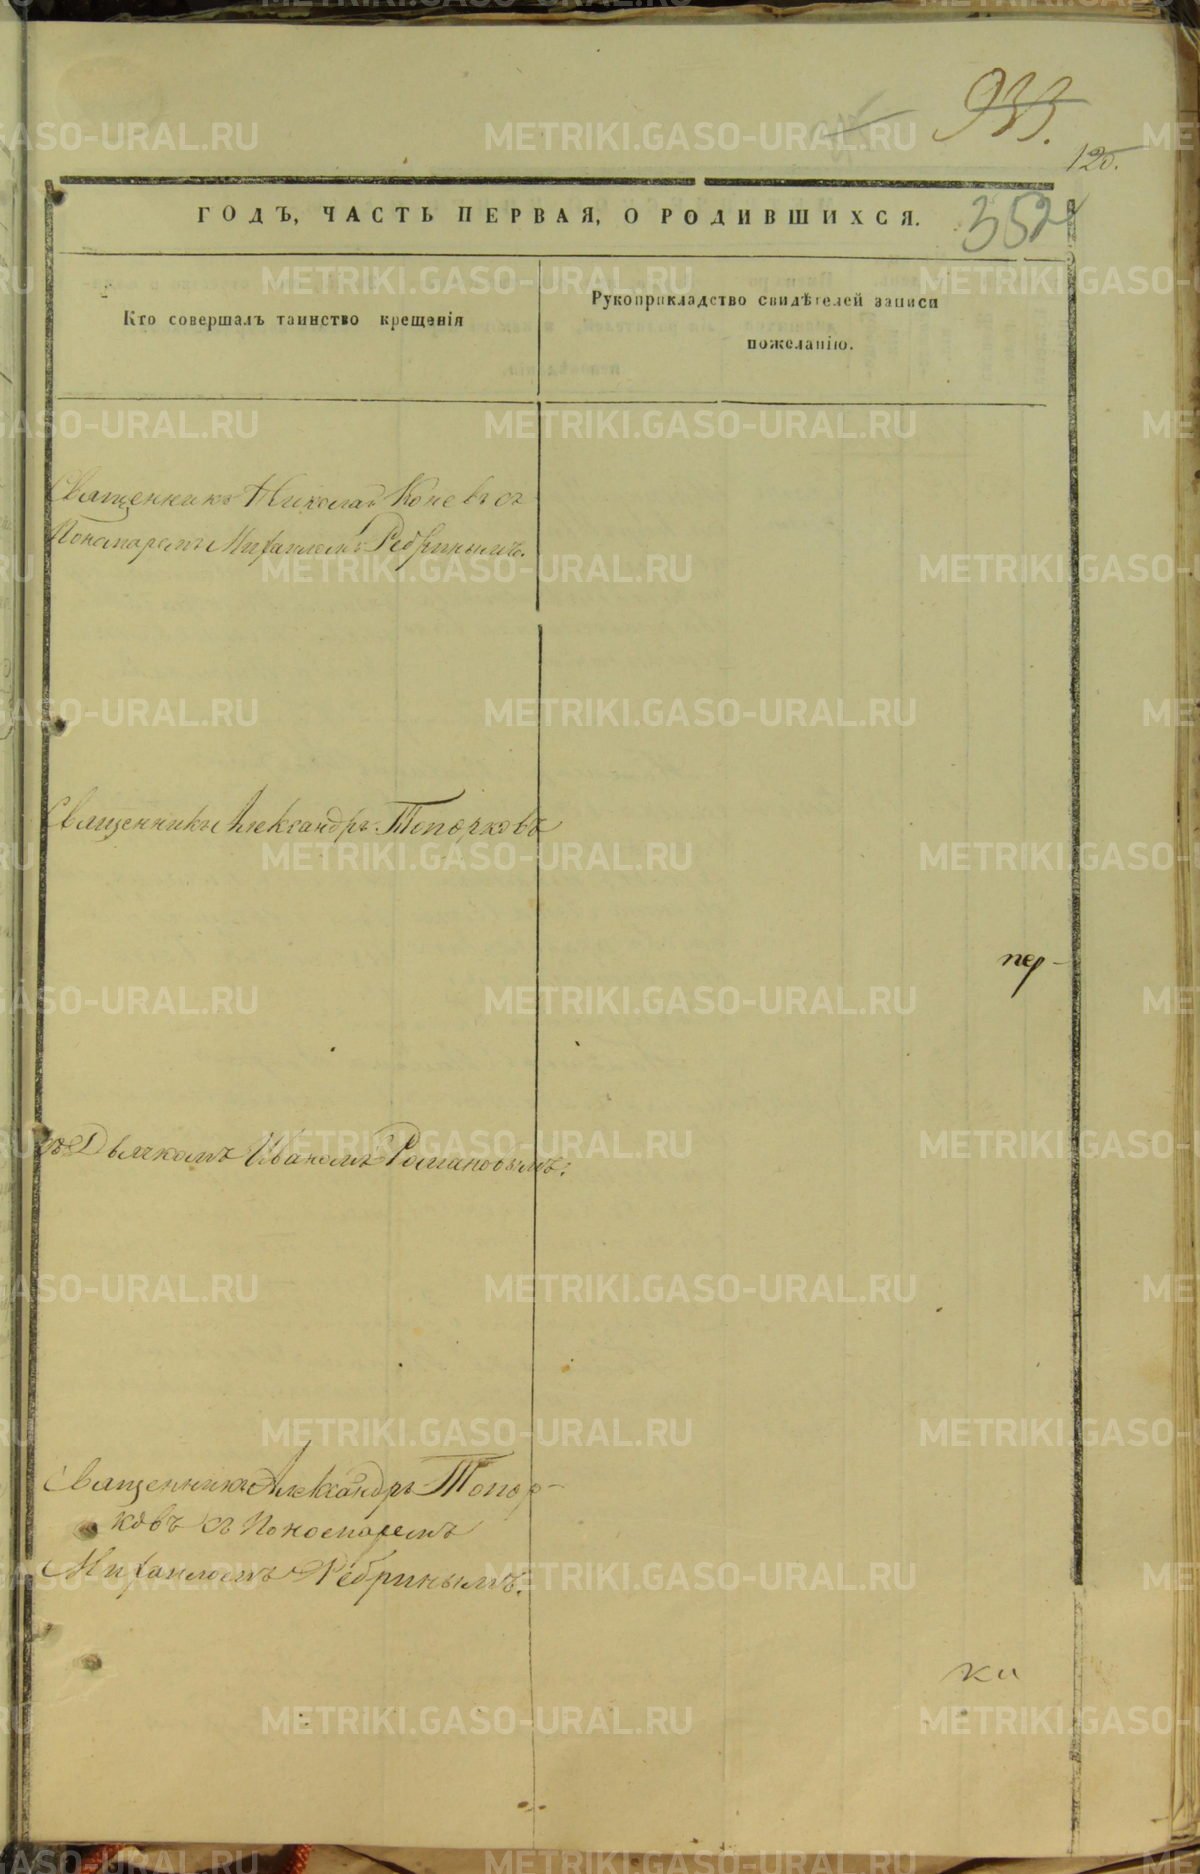 933.
125.
352
ГОДЪ, ЧАСТЬ ПЕРВАЯ, О РОДИВШИХСЯ.
Кто совершалъ таинство крещенія
Рукоприкладство свидѣтелей записи
пожеланію.
Священникъ Николай Коневъ съ
Пономаремъ Михаиломъ Ребринымъ.
Священникъ Александръ Топорковъ
пер-
съ Дьячкомъ Иваномъ Романовымъ.
Священникъ Александръ Топор-
ковъ съ Пономаремъ
Михаиломъ Ребринымъ.
ки
METRIKI.GASO-URAL.RU